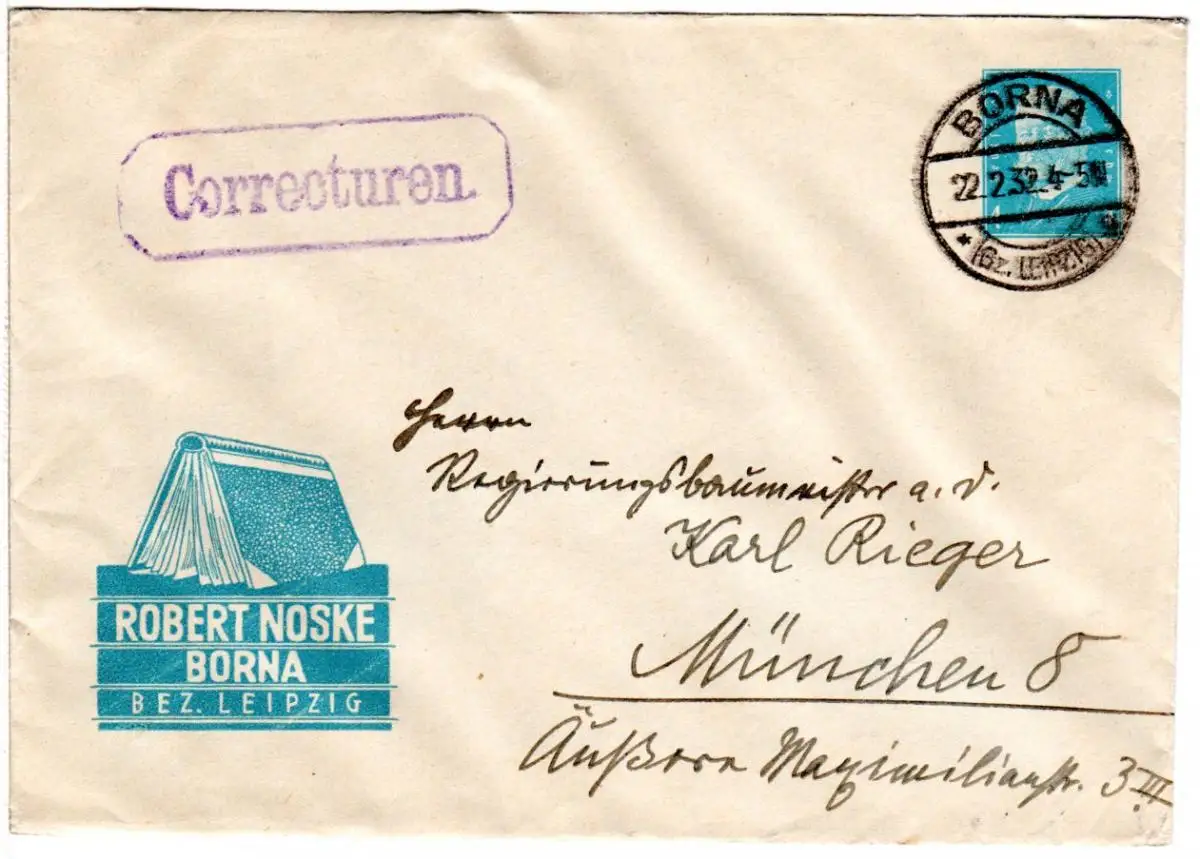 Correcturen.
BORNA
22.2.32.4-5N
* (Bz. LEIPZIG) *
4
Herrn
Regierungsbaumeister a. D.
Karl Rieger
München 8
Äußere Maximilianstr. 3 III
ROBERT NOSKE
BORNA
BEZ. LEIPZIG